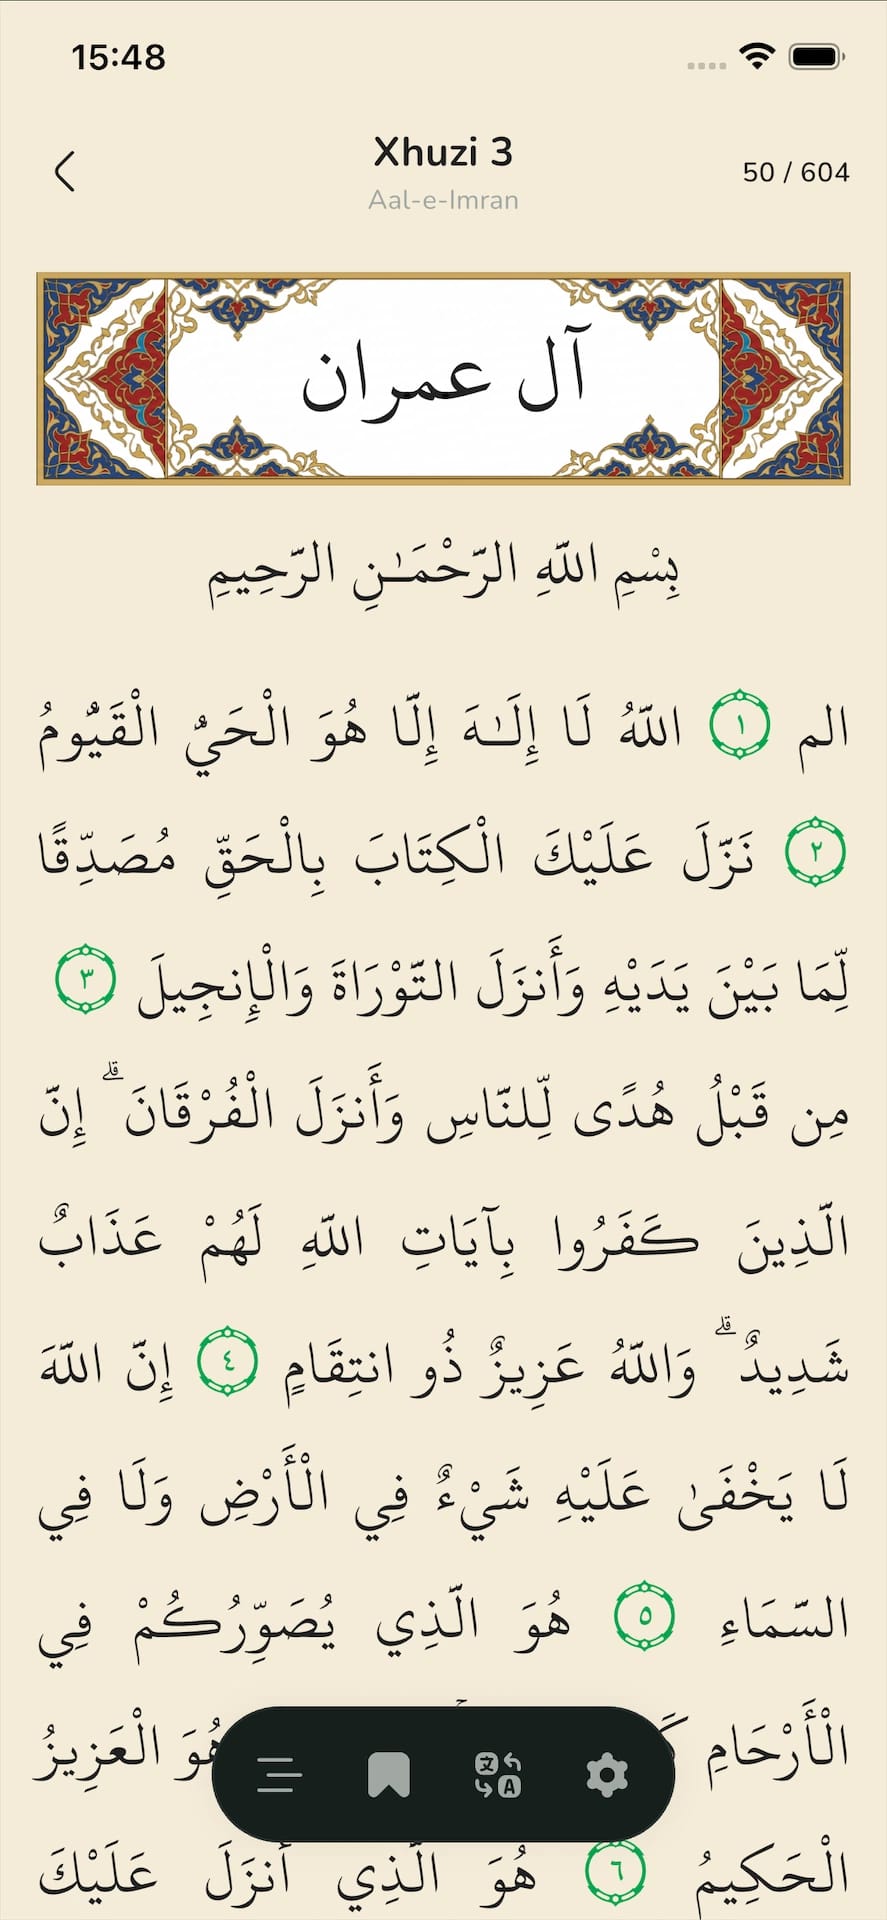 15:48
Xhuzi 3
50 / 604
Aal-e-Imran
آل عمران
بِسْمِ اللَّهِ الرَّحْمَـٰنِ الرَّحِيمِ
الم ١ اللَّهُ لَا إِلَـٰهَ إِلَّا هُوَ الْحَيُّ الْقَيُّومُ
٢ نَزَّلَ عَلَيْكَ الْكِتَابَ بِالْحَقِّ مُصَدِّقًا
لِّمَا بَيْنَ يَدَيْهِ وَأَنزَلَ التَّوْرَاةَ وَالْإِنجِيلَ ٣
مِن قَبْلُ هُدًى لِّلنَّاسِ وَأَنزَلَ الْفُرْقَانَ ۗ إِنَّ
الَّذِينَ كَفَرُوا بِآيَاتِ اللَّهِ لَهُمْ عَذَابٌ
شَدِيدٌ ۗ وَاللَّهُ عَزِيزٌ ذُو انتِقَامٍ ٤ إِنَّ اللَّهَ
لَا يَخْفَىٰ عَلَيْهِ شَيْءٌ فِي الْأَرْضِ وَلَا فِي
السَّمَاءِ ٥ هُوَ الَّذِي يُصَوِّرُكُمْ فِي
الْأَرْحَامِ هُوَ الْعَزِيزُ
الْحَكِيمُ ٦ هُوَ الَّذِي أَنزَلَ عَلَيْكَ